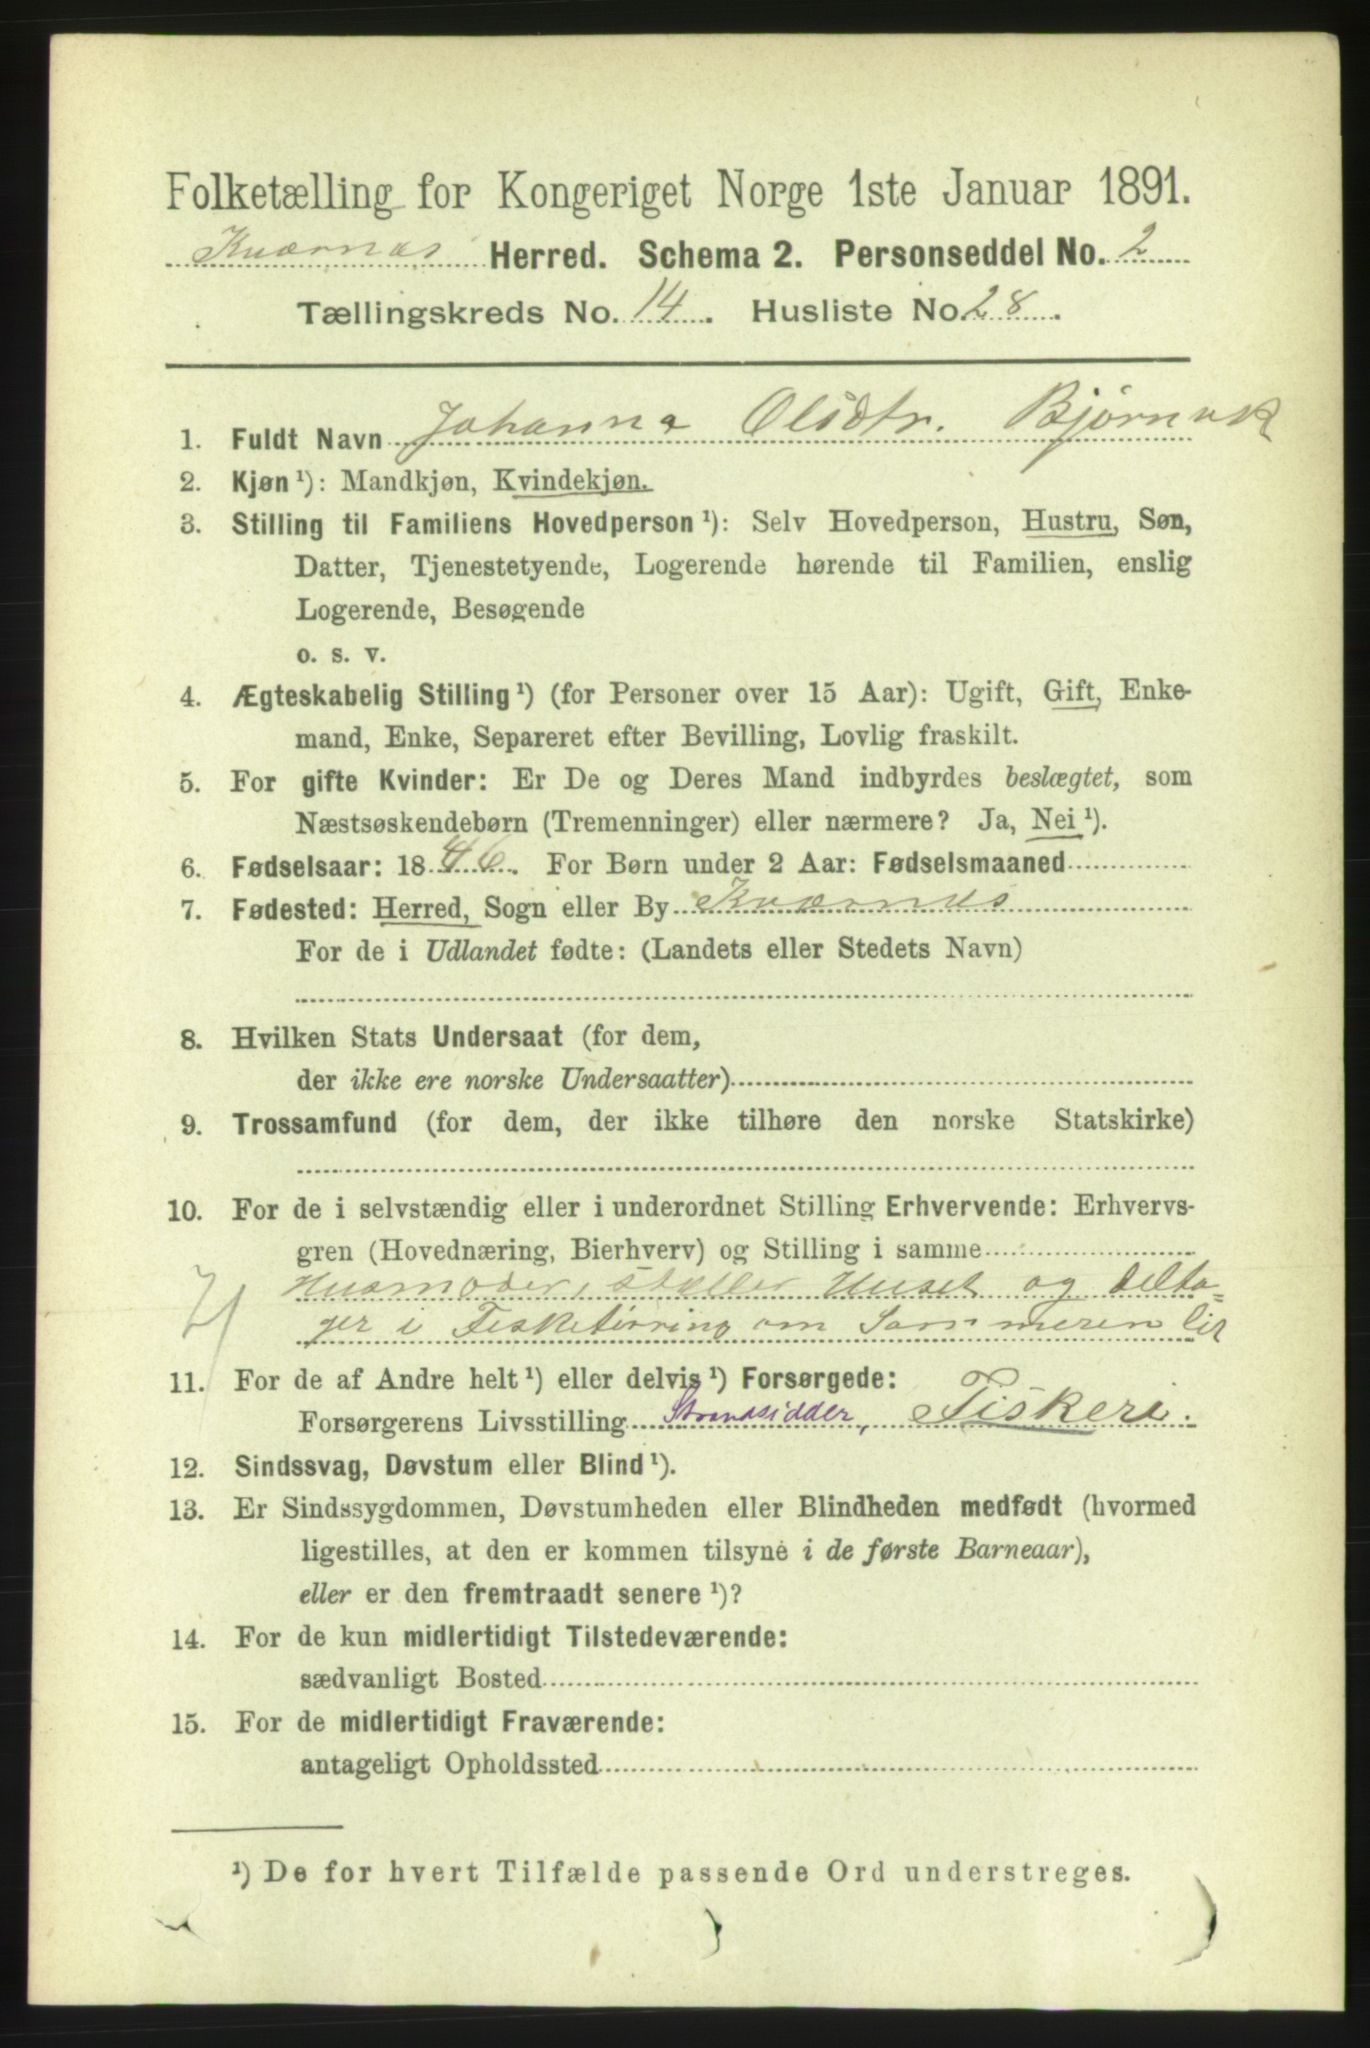 Folketælling for Kongeriget Norge 1ste Januar 1891.
Kværnæs Herred. Schema 2. Personseddel No. 2
Tællingskreds No. 14. Husliste No. 28.
1. Fuldt Navn Johanna Olsdtr. Bjørnvik
2. Kjøn ¹): Mandkjøn, Kvindekjøn.
3. Stilling til Familiens Hovedperson ¹): Selv Hovedperson, Hustru, Søn,
Datter, Tjenestetyende, Logerende hørende til Familien, enslig
Logerende, Besøgende
o. s. v.
4. Ægteskabelig Stilling ¹) (for Personer over 15 Aar): Ugift, Gift, Enke-
mand, Enke, Separeret efter Bevilling, Lovlig fraskilt.
5. For gifte Kvinder: Er De og Deres Mand indbyrdes beslægtet, som
Næstsøskendebørn (Tremenninger) eller nærmere? Ja, Nei ¹).
6. Fødselsaar: 1846. For Børn under 2 Aar: Fødselsmaaned
7. Fødested: Herred, Sogn eller By Kværnæs
For de i Udlandet fødte: (Landets eller Stedets Navn)
8. Hvilken Stats Undersaat (for dem,
der ikke ere norske Undersaatter)
9. Trossamfund (for dem, der ikke tilhøre den norske Statskirke)
10. For de i selvstændig eller i underordnet Stilling Erhvervende: Erhvervs-
gren (Hovednæring, Bierhverv) og Stilling i samme
Husmoder, stæller Huset og delta-
ger i Fisketørring om Sommeren
11. For de af Andre helt ¹) eller delvis ¹) Forsørgede:
Forsørgerens Livsstilling Strandsidder, Fiskeri.
12. Sindssvag, Døvstum eller Blind ¹).
13. Er Sindssygdommen, Døvstumheden eller Blindheden medfødt (hvormed
ligestilles, at den er kommen tilsyne i de første Barneaar),
eller er den fremtraadt senere ¹)?
14. For de kun midlertidigt Tilstedeværende:
sædvanligt Bosted
15. For de midlertidigt Fraværende:
antageligt Opholdssted
¹) De for hvert Tilfælde passende Ord understreges.